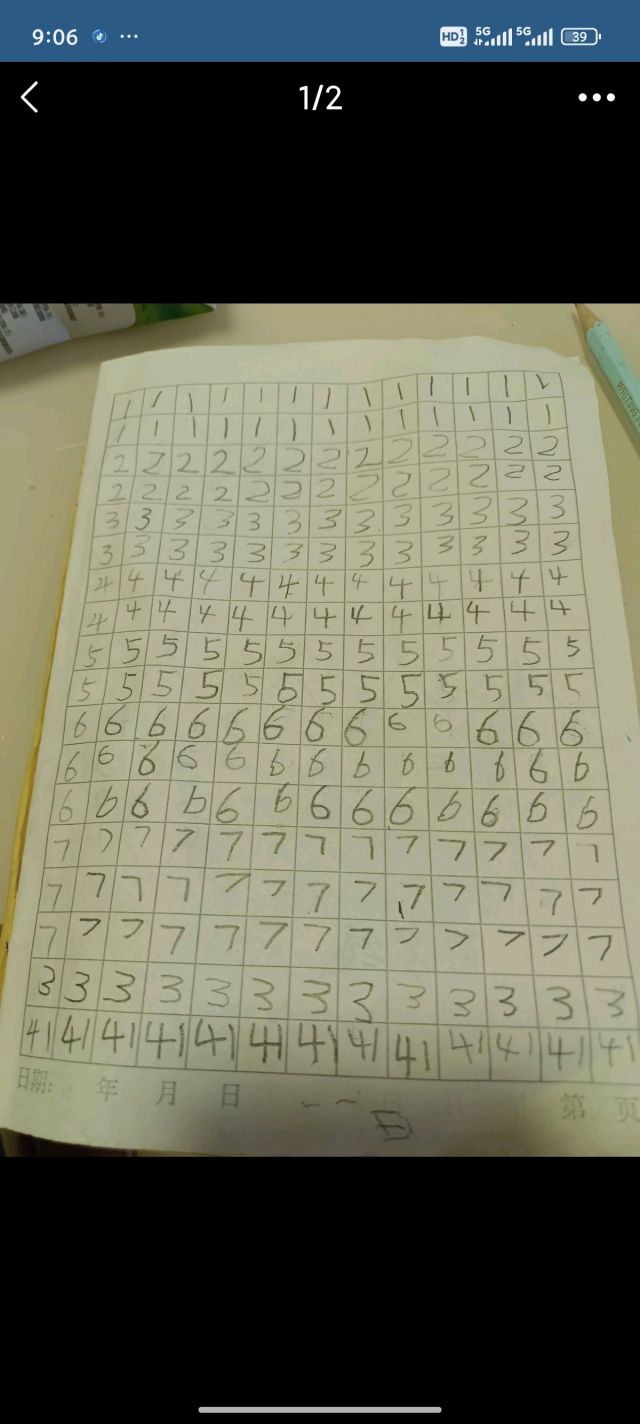 9:06 HD 1 2 5G 5G 39
1/2
WRITING
1 1 1 1 1 1 1 1 1 1 1 1 1
1 1 1 1 1 1 1 1 1 1 1 1 1
2 2 2 2 2 2 2 2 2 2 2 2 2
2 2 2 2 2 2 2 2 2 2 2 2 2
3 3 3 3 3 3 3 3 3 3 3 3 3
3 3 3 3 3 3 3 3 3 3 3 3 3
4 4 4 4 4 4 4 4 4 4 4 4 4
4 4 4 4 4 4 4 4 4 4 4 4 4
5 5 5 5 5 5 5 5 5 5 5 5 5
5 5 5 5 5 5 5 5 5 5 5 5 5
6 6 6 6 6 6 6 6 6 6 6 6 6
6 6 6 6 6 6 6 6 6 6 6 6 6
6 6 6 6 6 6 6 6 6 6 6 6 6
7 7 7 7 7 7 7 7 7 7 7 7 7
7 7 7 7 7 7 7 7 7 7 7 7 7
7 7 7 7 7 7 7 7 7 7 7 7 7
3 3 3 3 3 3 3 3 3 3 3 3 3
41 41 41 41 41 41 41 41 41 41 41 41 41
日期: 年 月 日 第 页